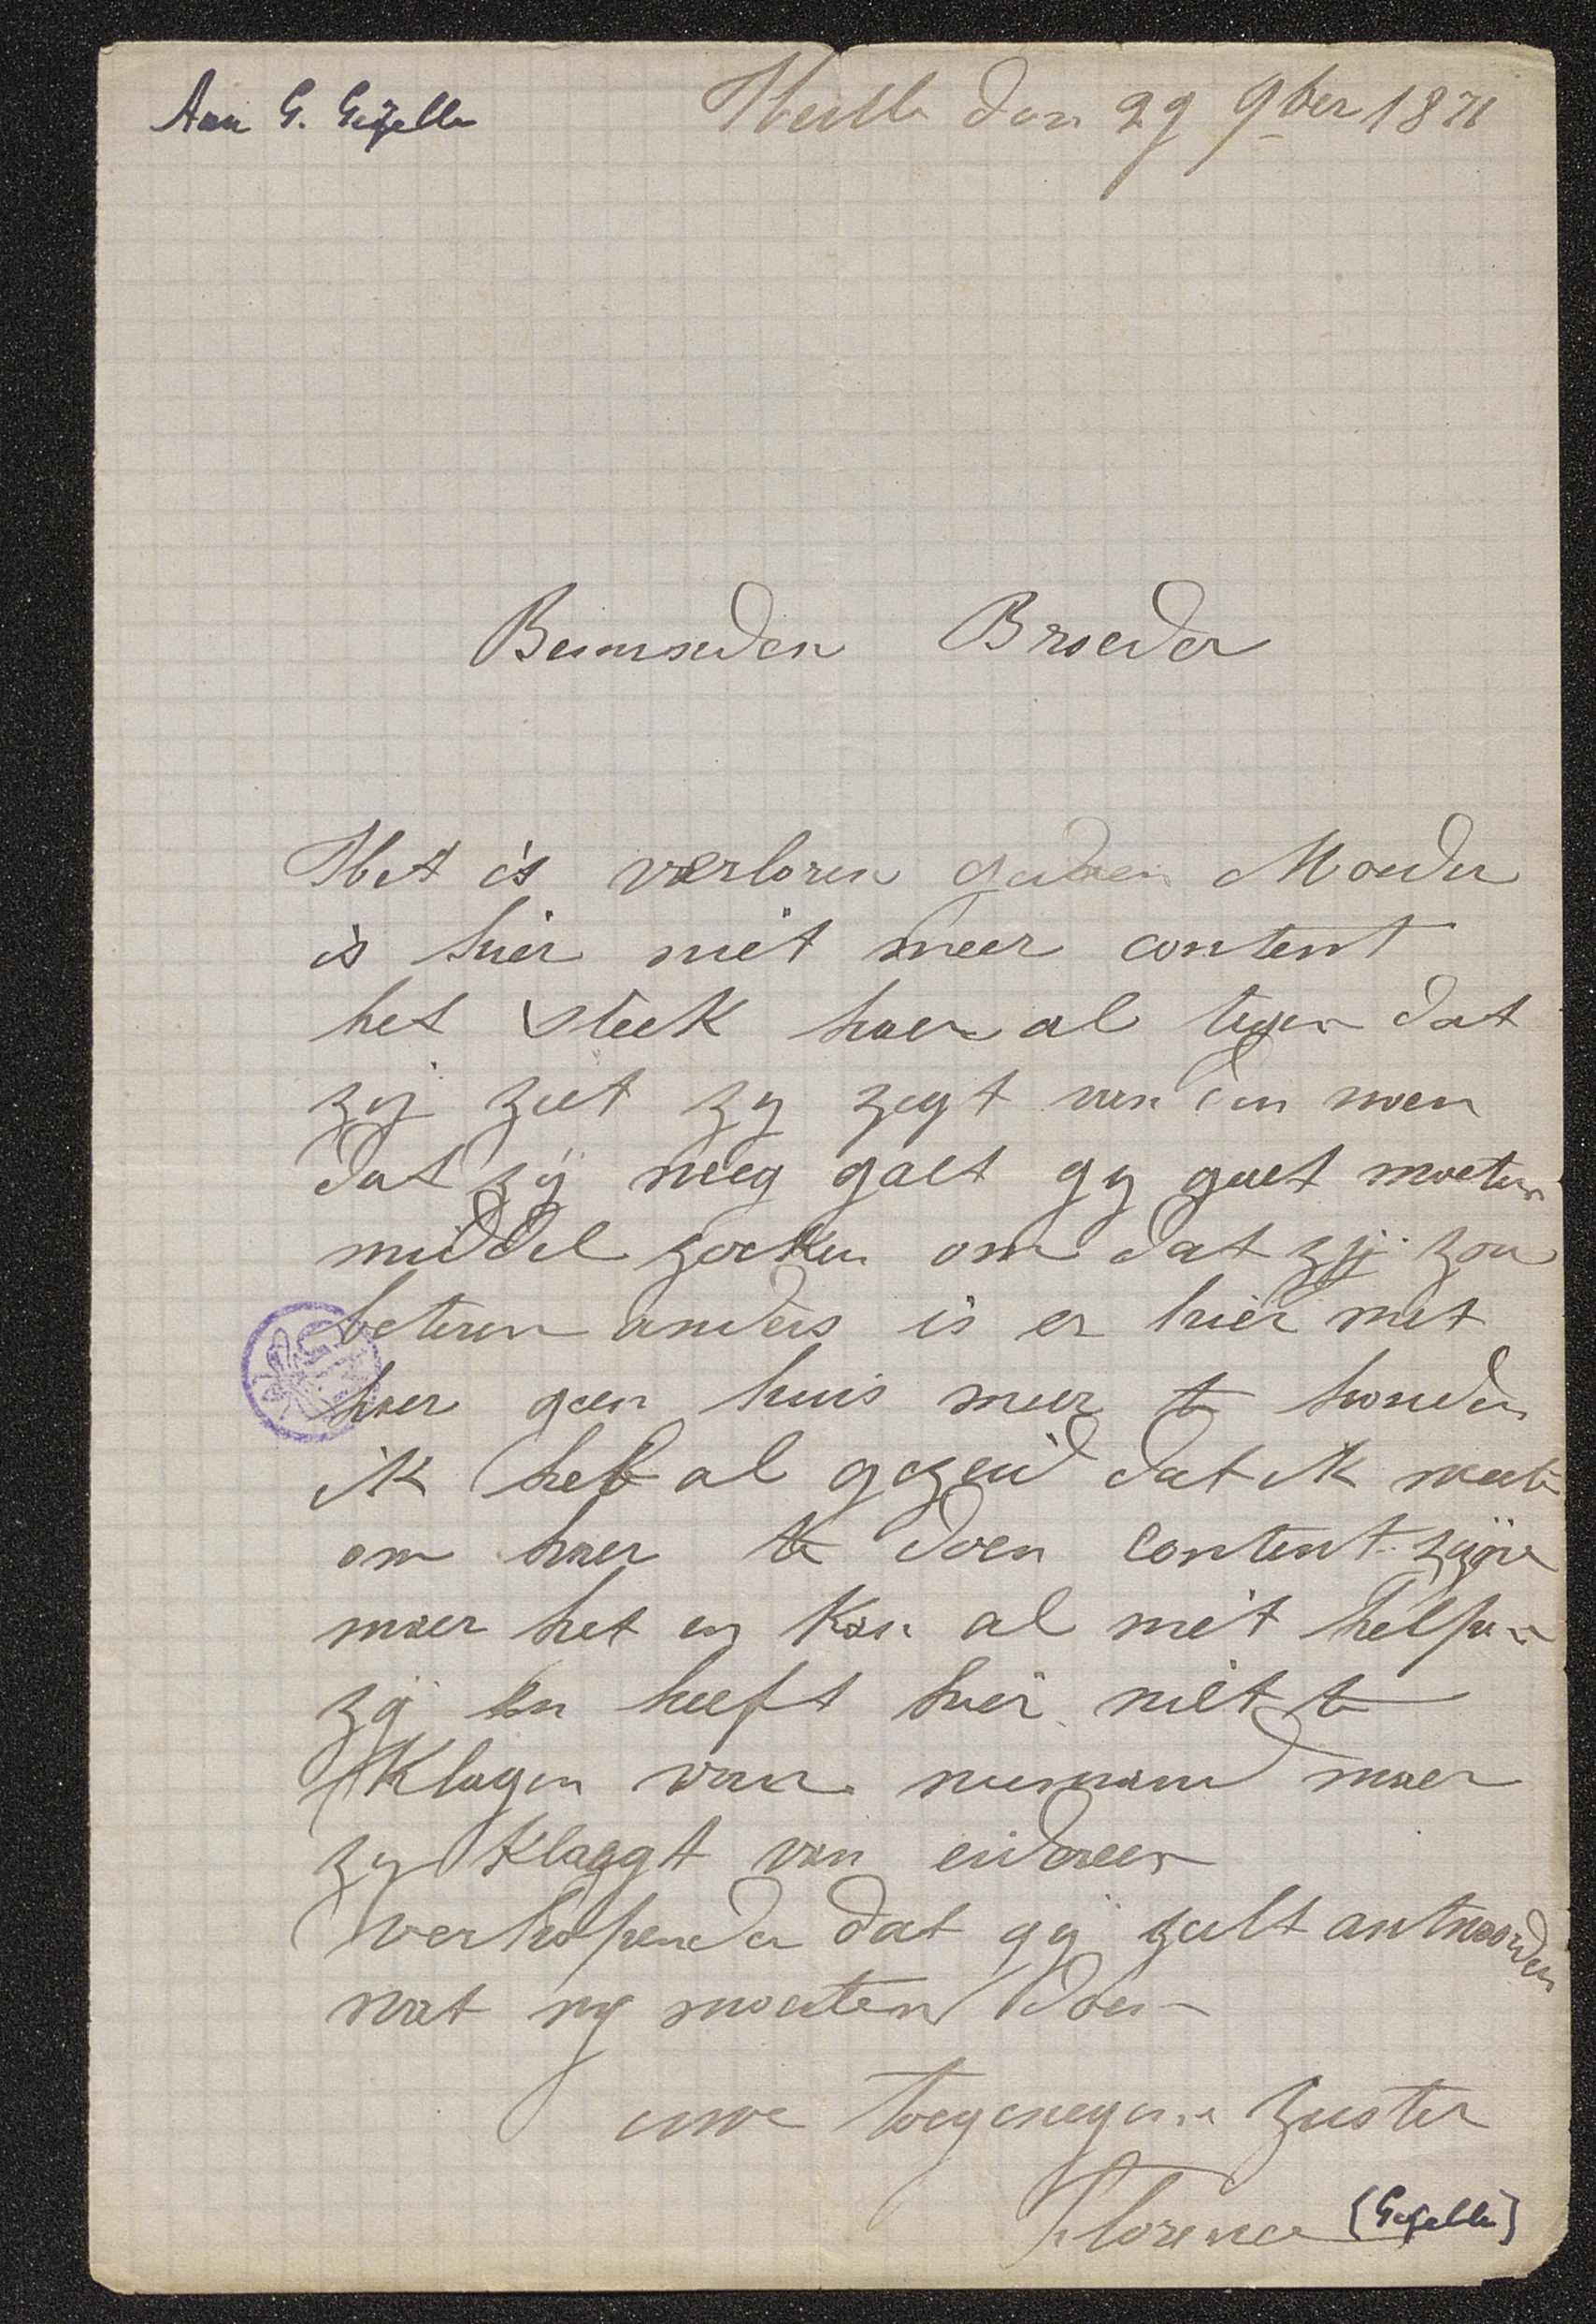 Aan G. Gezelle
Heule den 29 9ber 1871
Beminden Broeder
Het is verloren gedaen Moeder
is hier niet meer content
het steek haer al tegen dat
zij ziet zy zegt van den noen
dat zij weg gaet gy gaet moeten
middel zoeken om dat zij zou
beteren anders is er hier met
haer geen huis meer te houden
ik heb al gezeid dat ik weete
om haer te doen content zijn
maer het en kan al niet helpen
zij en heeft hier niet te
klagen van niemand maer
zy klaegt van eidereen
verhopende dat gij zult antwoorden
wat wy moeten doen
uwe toegenegene zuster
Florence (Gezelle)